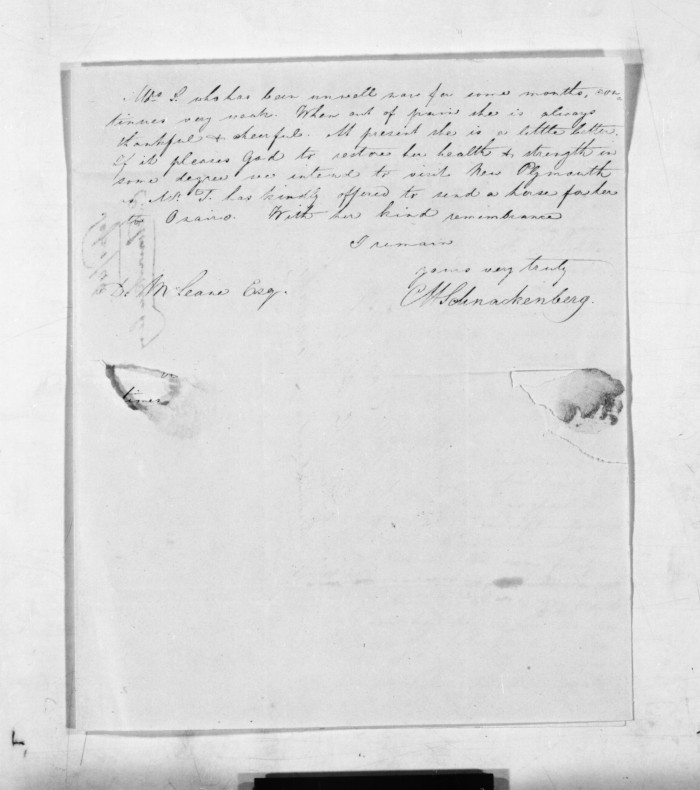 Mrs. S. who has been unwell now for some months, con-
tinues very weak. When out of pain she is always
thankful & cheerful. At present she is a little better.
If it pleases God to restore her health & strength in
some degree we intend to visit New Plymouth
& Mr. T. has kindly offered to send a horse for her
to Oeairo. With her kind remembrance
I remain
yours very truly
D. McLeane Esq.
CH Schnackenberg.
times